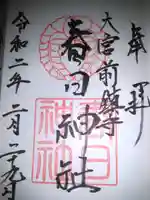 奉拝
大宮前鎮守
春日神社
春日神社
令和二年二月二十九日